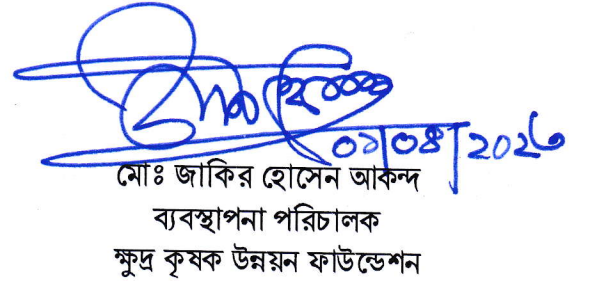 ০১/০৪/২০২৬
মোঃ জাকির হোসেন আকন্দ
ব্যবস্থাপনা পরিচালক
ক্ষুদ্র কৃষক উন্নয়ন ফাউন্ডেশন